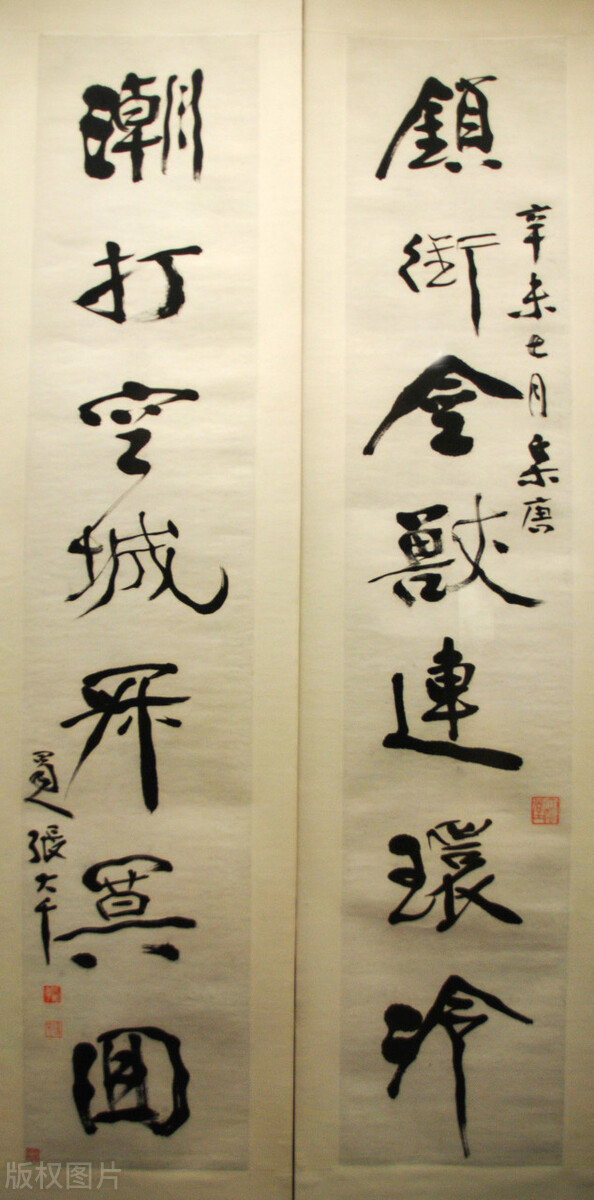 鎖銜金獸連環冷
辛未七月集唐
潮打空城寂寞回
蜀人張大千
版权图片